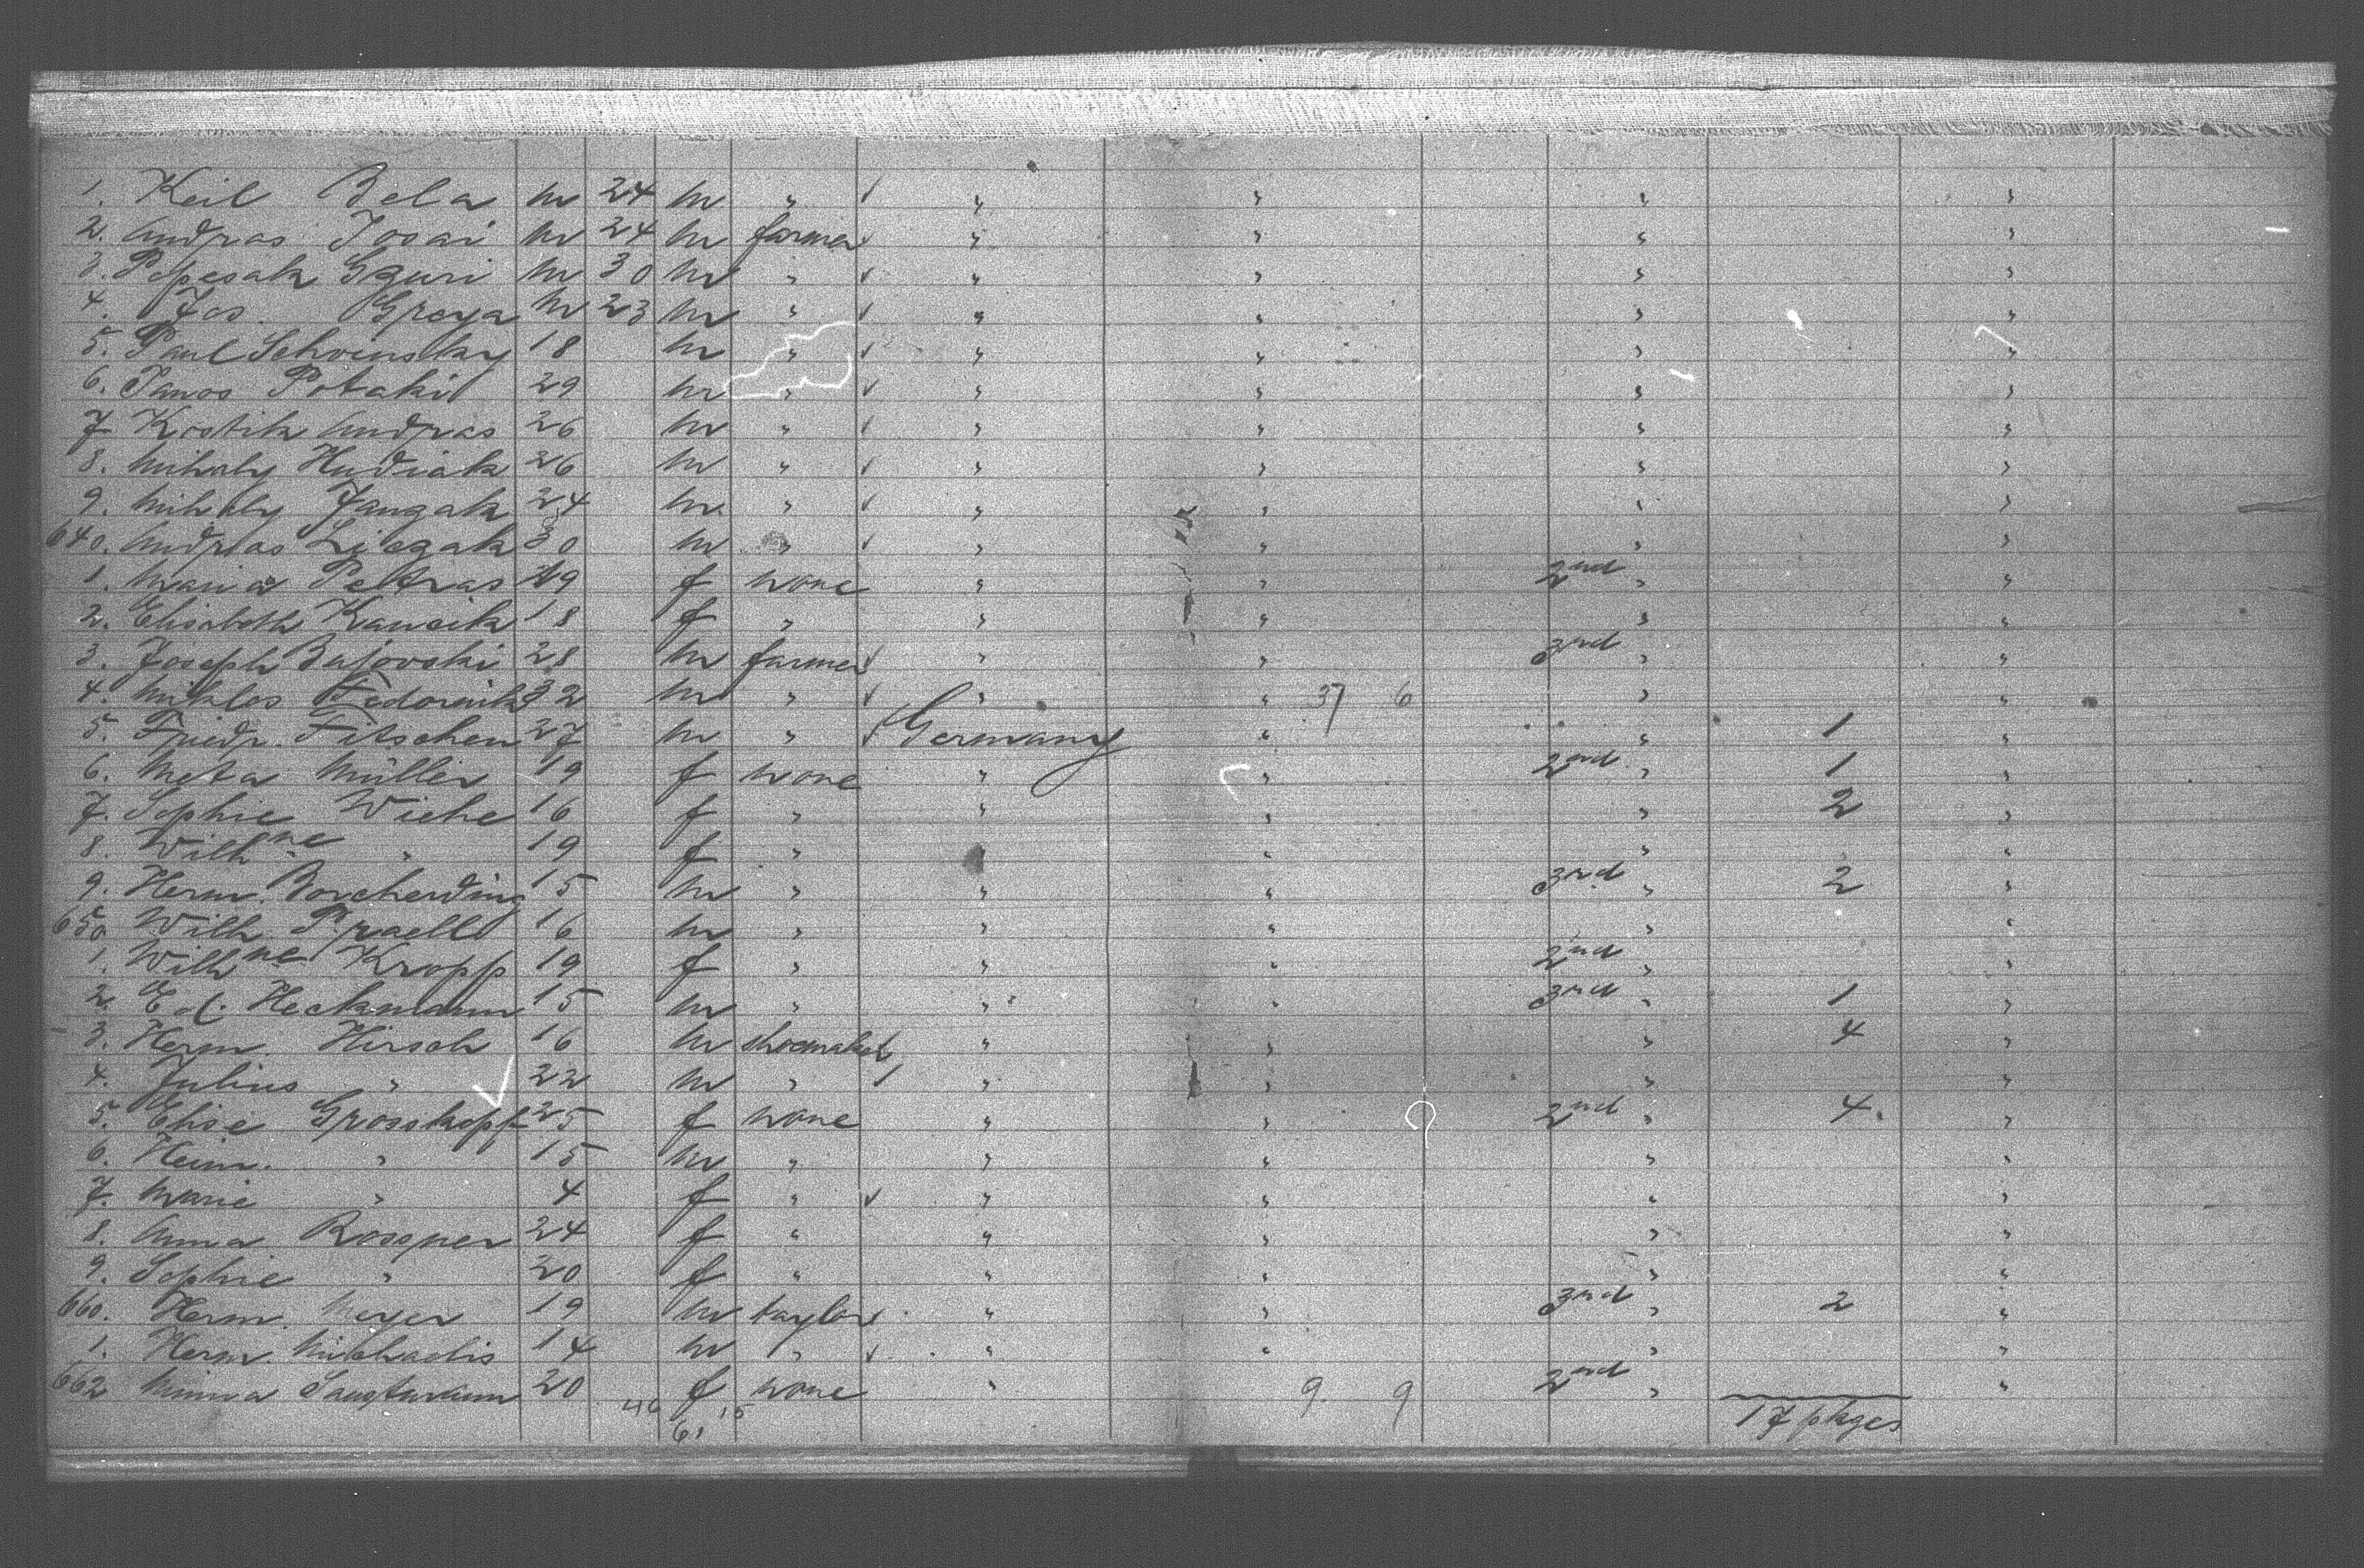 1. Keil Bela m 24 m " ✓ " " " "
2. Andras Josai m 24 m farmer ✓ " " " "
3. Popesak Gzuri m 30 m " ✓ " " " "
4. Jos. Greya m 23 m " ✓ " " " "
5. Paul Schvinsky 18 m " ✓ " " " "
6. Janos Potaki 29 m " ✓ " " " "
7 Kostik Andras 26 m " ✓ " " " "
8. Mihaly Hudiak 26 m " ✓ " " " "
9. Mihaly Jangak 24 m " ✓ " " " "
640. Andras Liczak 30 m " ✓ " " " "
1. Maria Petras 19 f none " " 2nd " "
2. Elisabeth Kancik 18 f " " " " "
3. Joseph Bajovski 28 m farmer ✓ " " 3rd " "
4. Miklos Fedornik 32 m " ✓ " " 37 6 " "
5. Friedr. Fitschen 27 m " ✓ Germany " " 1 "
6. Meta Müller 19 f none " " 2nd " 1 "
7. Sophie Wiehe 16 f " " " " 2 "
8. Wilhne " 19 f " " " " "
9. Herm. Borcherding 15 m " " " 3rd " 2 "
650 Wilh. Praell 16 m " " " " "
1. Wilhne Kropp 19 f " " " 2nd " "
2. Ed. Heckmann 15 m " " " 3rd " 1 "
3. Herm. Hirsch 16 m shoemaker " " " 4 "
4. Julius " 22 m " ✓ " " " "
5. Elise Grosskopf 25 f none " " 2nd " 4. "
6. Heinr. " 15 m " " " " "
7. Marie " 4 f " ✓ " " " "
8. Anna Rossner 24 f " " " " "
9. Sophie " 20 f " " " " "
660. Herm. Meyer 19 m taylor " " 3rd " 2 "
1. Herm. Michaelis 14 m " ✓ " " " "
662 Minna 20 f none " 9 9 2nd " "
46 15 17 pkges
61